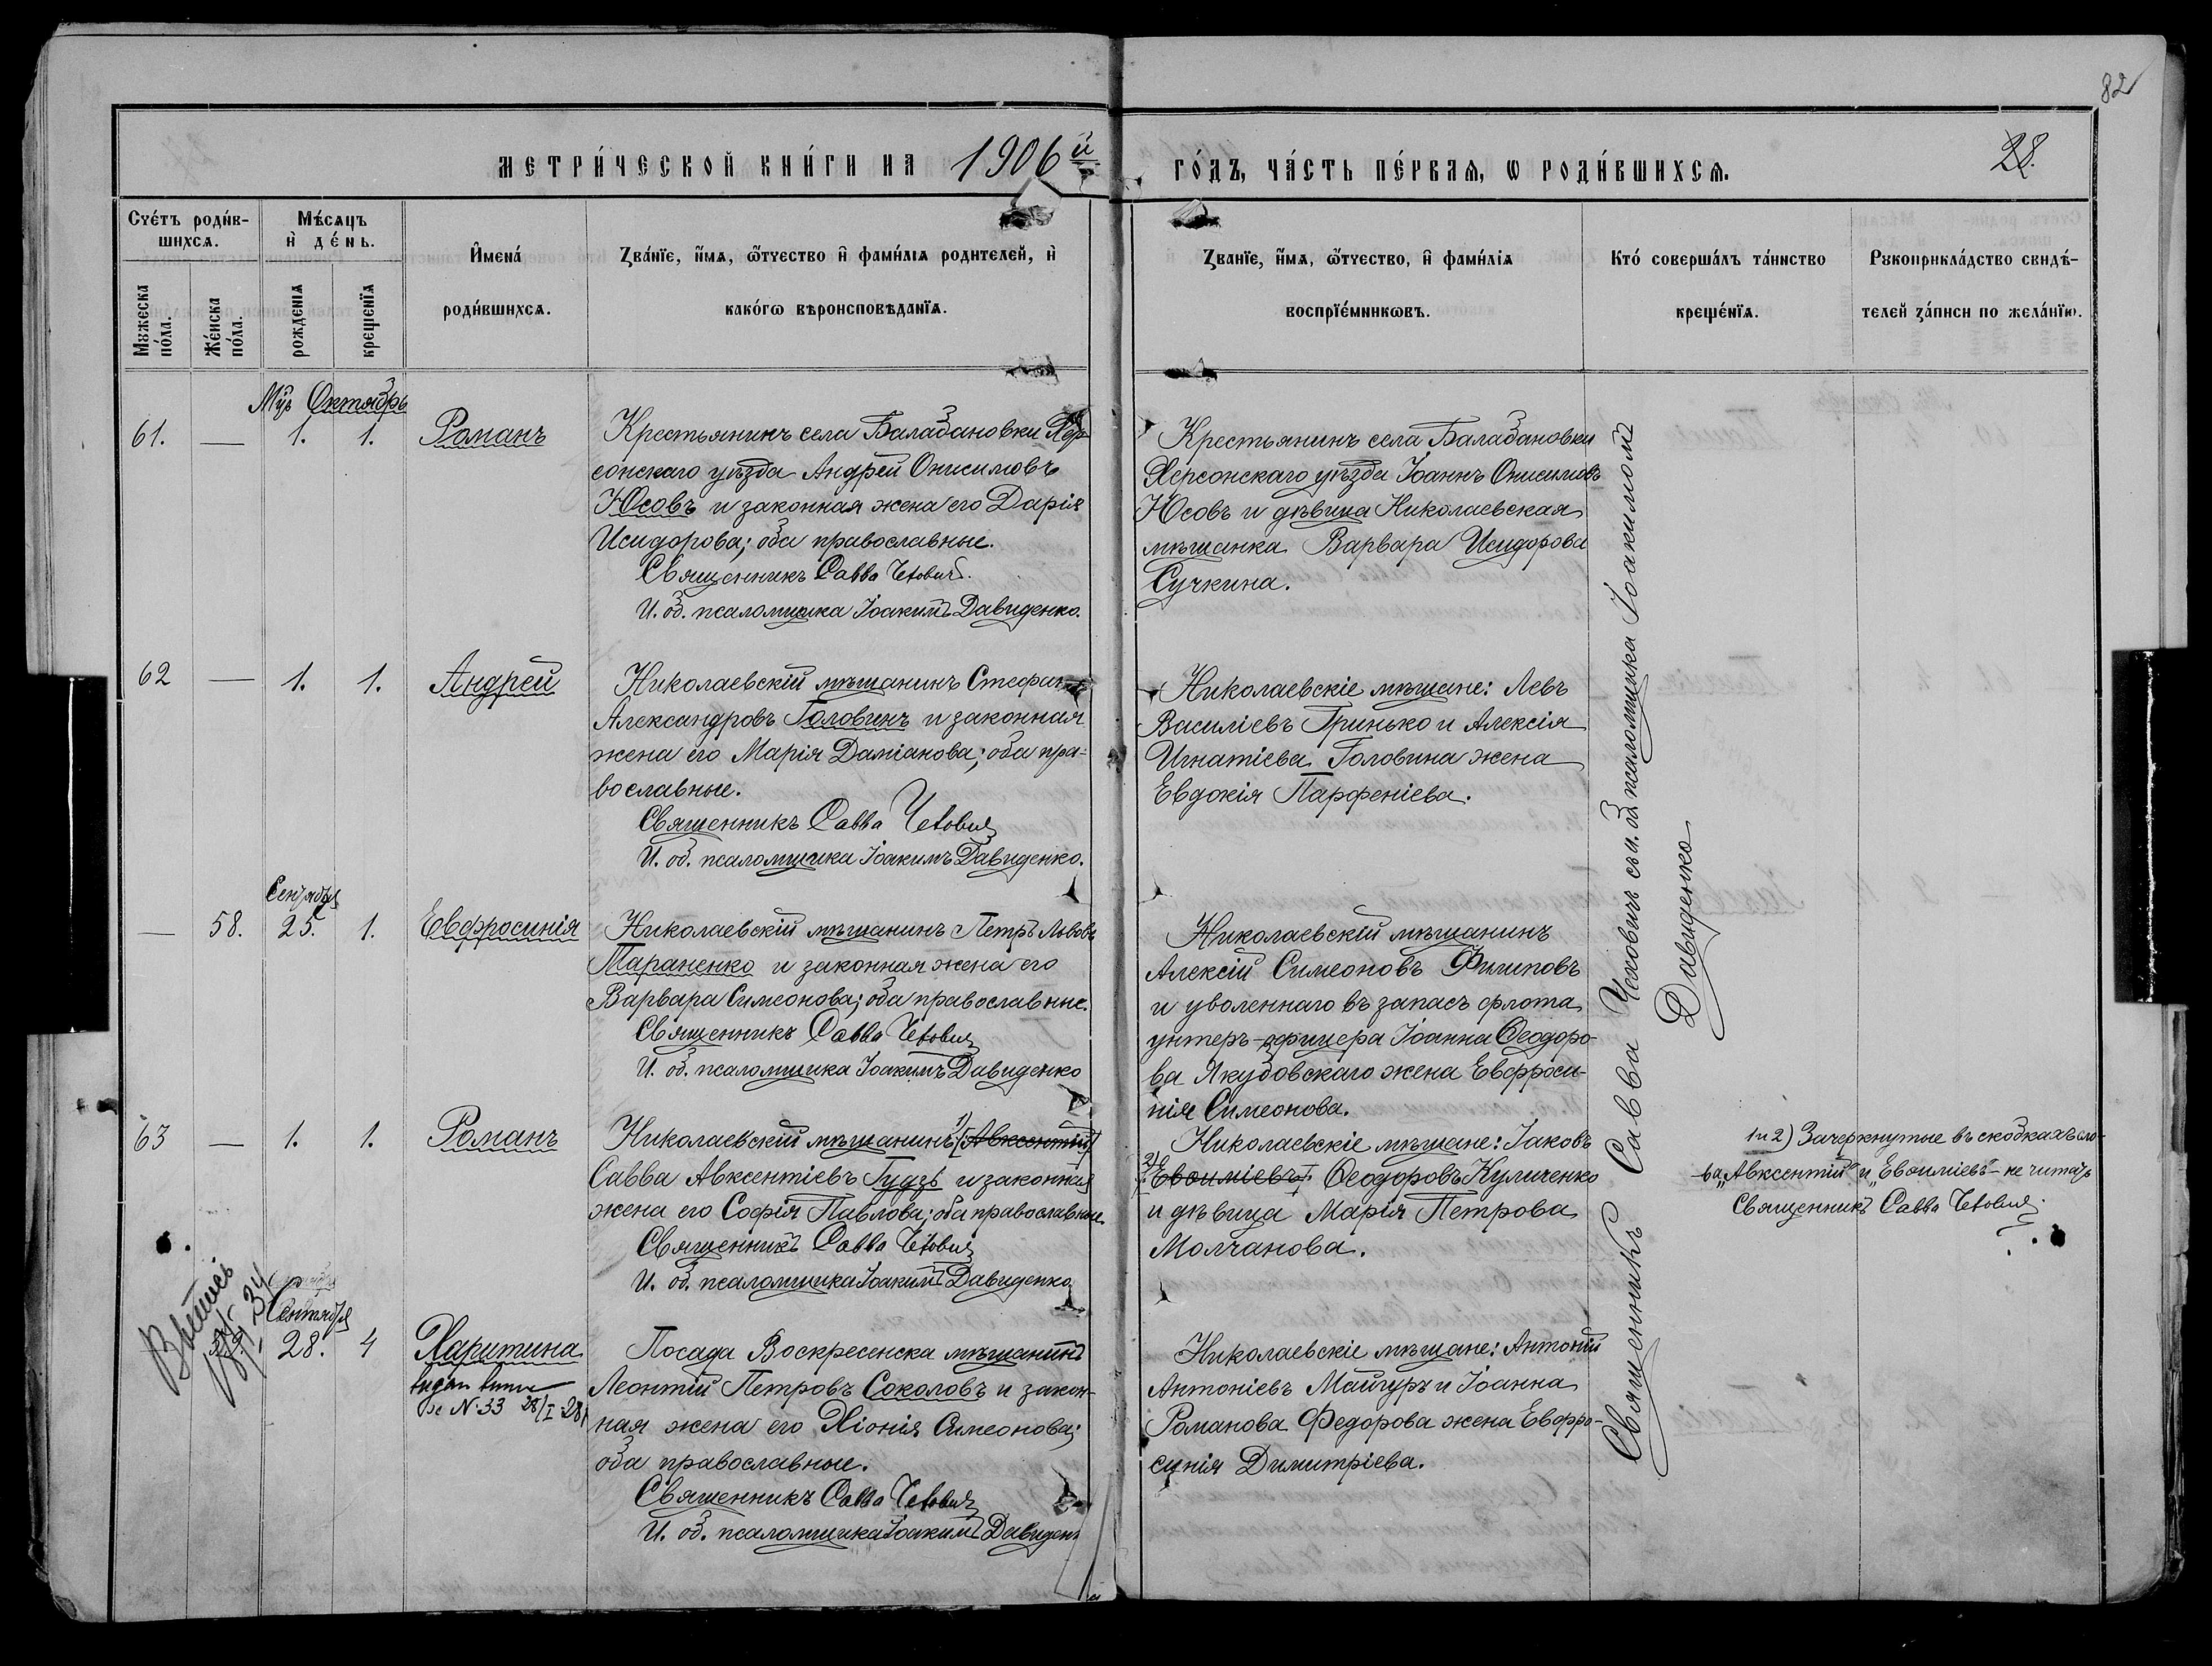 82
28.
МЕТРИ́ЧЕСКОЙ КНИ́ГИ НА 1906й
ГО́ДЪ, ЧА́СТЬ ПЕ́РВАѦ, Ѡ РОДИ́ВШИХСѦ.
Сче́тъ роди́в-
шихсѧ.
Мꙋжеска
по́ла.
Же́нска
по́ла.
Мѣ́сѧцъ
и҆ де́нь.
рожденіѧ
крещенїѧ
И҆мена́
роди́вшихсѧ.
Зва́нїе, и҆́мѧ, ѻ҆́тчество и҆ фами́лїѧ родителей, и҆
како́гѡ вѣроисповѣданїѧ.
Званїе, и҆́мѧ, ѻ҆́тчество, и҆ фами́лїѧ
воспрїе́мникѡвъ.
Кто̀ соверша́лъ та́инство
креще́нїѧ.
Рꙋкоприкла́дство свидѣ́-
телей за́писи по жела́нїю.
Мцъ Октябрь
61. — 1. 1. Романъ
Крестьянинъ села Балабановки Хер-
сонскаго уѣзда Андрей Онисимовъ
Юсовъ и законная жена его Дарія
Исидорова; оба православные.
Священникъ Савва Чехович.
И. об. псаломщика Іоакимъ Давиденко.
Крестьянинъ села Балабановки
Херсонскаго уѣзда Іоаннъ Онисимовъ
Юсовъ и дѣвица Николаевская
мѣщанка Варвара Исидорова
Сучкина.
62 — 1. 1. Андрей
Николаевскій мѣщанинъ Стефанъ
Александровъ Головинъ и законная
жена его Марія Даміанова; оба пра-
вославные.
Священникъ Савва Чехович
И. об. псаломщика Іоакимъ Давиденко.
Николаевскіе мѣщане: Левъ
Василіевъ Гринько и Алексія
Игнатіева Головина жена
Евдокія Парфеніева.
Сентября
— 58. 25. 1. Евфросинія
Николаевскій мѣщанинъ Петръ Львовъ
Тараненко и законная жена его
Варвара Симеонова; оба православные.
Священникъ Савва Чехович
И. об. псаломщика Іоакимъ Давиденко
Николаевскій мѣщанинъ
Алексій Симеоновъ Филиповъ
и уволеннаго въ запасъ флота
унтеръ-офицера Іоанна Ѳеодоро-
ва Якубовскаго жена Евфроси-
нія Симеонова.
63 — 1. 1. Романъ
Николаевскій мѣщанинъ 1) [Авксентій]
Савва Авксентіевъ Гудзь и законная
жена его Софія Павлова; оба православные.
Священникъ Савва Чехович
И. об. псаломщика Іоакимъ Давиденко
Николаевскіе мѣщане: Іаковъ
2) [Евѳиміевъ] Ѳеодоровъ Куличенко
и дѣвица Марія Петрова
Молчанова.
1 и 2) Зачеркнутые въ скобкахъ сло-
ва „Авксентій" и „Евѳиміевъ" – не читать
Священникъ Савва Чехович
Сентября
28. 4 Харитина
№ 33 28/I 28
Посада Воскресенска мѣщанинъ
Леонтій Петровъ Соколовъ и закон-
ная жена его Хіонія Симеонова;
оба православные.
Священникъ Савва Чехович
И. об. псаломщика Іоакимъ Давиден
Николаевскіе мѣщане: Антоній
Антоніевъ Майгуръ и Іоанна
Романова Федорова жена Евфро-
синія Димитріева.
Священникъ Савва Чеховичъ съ и. об. псаломщика Іоакимомъ
Давиденко